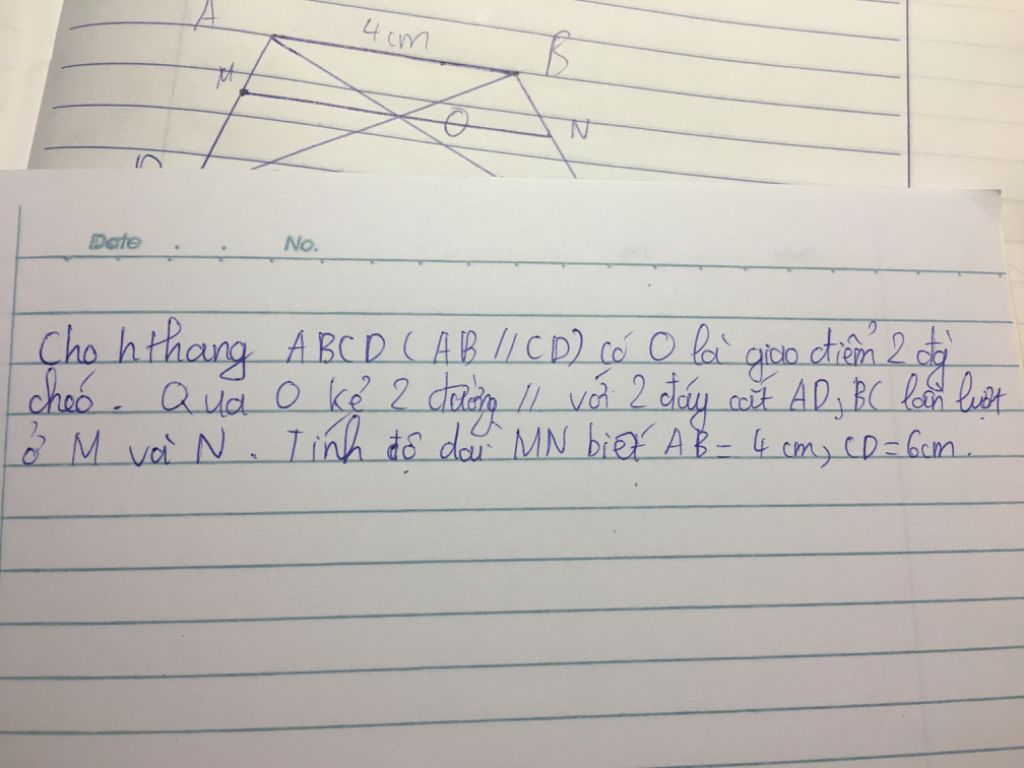 A 4cm B
M O N
D
Date . . No.
Cho hthang ABCD (AB // CD) có O là giao điểm 2 đg
chéo. Qua O kẻ 2 đường // với 2 đáy cắt AD, BC lần lượt
ở M và N. Tính độ dài MN biết AB = 4 cm, CD = 6cm.